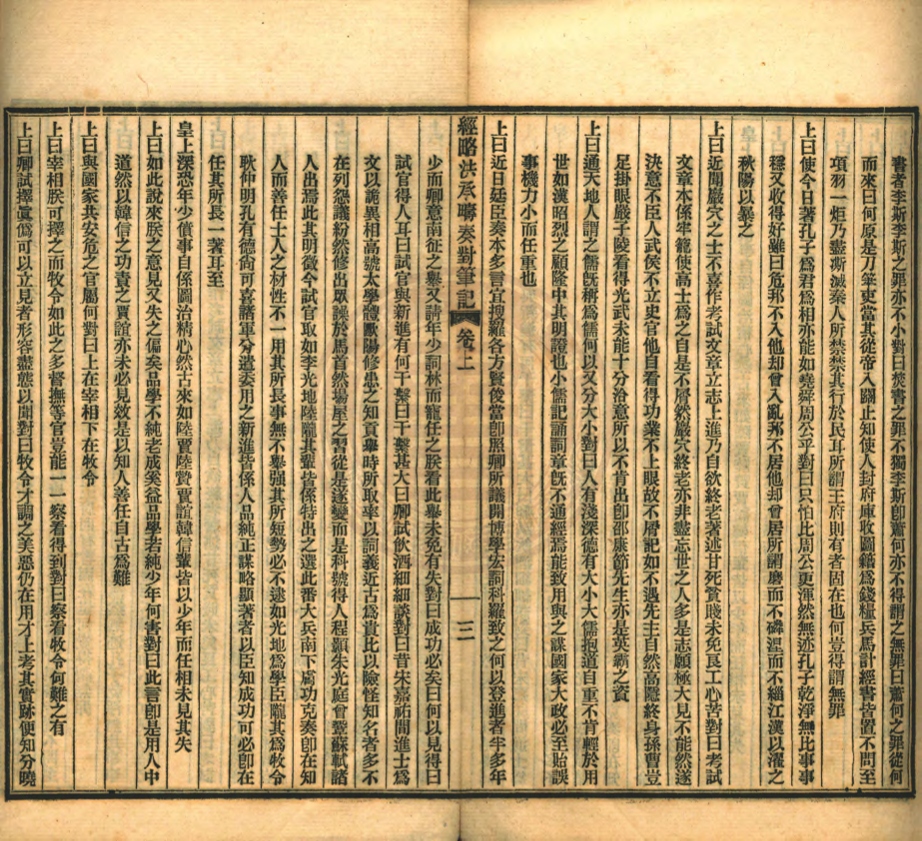 書者李斯李斯之罪亦不小對曰焚書之罪不獨李斯卽蕭何亦不得謂之無罪曰蕭何之罪從何
而來曰何原是刀筆吏當其從帝入關止知使人封府庫收圖籍爲錢糧兵馬計經書皆置不問至
項羽一炬乃盡斯滅秦人所禁禁其行於民耳所謂王府則有者固在也何豈得謂無罪
上曰使今日著孔子爲君爲相亦能如堯舜周公乎對曰只怕比周公更渾然無迹孔子乾淨無比事事
穩又收得好雖曰危邦不入他却曾入亂邦不居他却曾居所謂磨而不磷湼而不緇江漢以濯之
秋陽以暴之
上曰近聞巖穴之士不喜作考試文章立志上進乃自欲終老著述甘死賞賤未免良工心苦對曰考試
文章本係牢籠使高士爲之自是不屑然巖穴終老亦非盡忘世之人多是志願極大見不能然遂
決意不臣人武侯不立史官他自看得功業不上眼故不屑記如不遇先主自然高隱終身孫曹豈
足掛眼嚴子陵看得光武未能十分洽意所以不肯出卽邵康節先生亦是英霸之資
上曰通天地人謂之儒旣稱爲儒何以又分大小對曰人有淺深德有大小大儒抱道自重不肯輕於用
世如漢昭烈之顧隆中其明證也小儒記誦詞章旣不通經焉能致用與之謀國家大政必至貽誤
事機力小而任重也
上曰近日廷臣奏本多言宜搜羅各方賢俊當卽照卿所議開博學宏詞科羅致之何以登進者半多年
經略洪承疇奏對筆記 卷上 三
少而卿意南征之舉又請年少詞林而寵任之朕看此舉未免有失對曰成功必矣曰何以見得曰
試官得人耳曰試官與新進有何干繫曰干繫甚大曰卿試飲酒細細談對曰昔宋嘉祐間進士爲
文以詭異相高號太學體歐陽修患之知貢舉時所取率以詞義近古爲貴比以險怪知名者多不
在列怨議紛然修出眾譟於馬首然場屋之習從是遂變而是科號得人程顥朱光庭曾鞏蘇軾諸
人出焉此其明徵今試官取如李光地陸隴其輩皆係特出之選此番大兵南下膚功克奏卽在知
人而善任士人之材性不一用其所長事無不舉强其所短勢必不逮如光地爲學臣隴其爲牧令
耿仲明孔有德尙可喜諸軍分遣委用之新進皆係人品純正謀略顯著者以臣知成功可必卽在
任其所長一著耳至
皇上深恐年少僨事自係圖治精心然古來如陸賈陸贄賈誼韓信輩皆以少年而任相未見其失
上曰如此說來朕之意見又失之偏矣品學不純老成奚益品學若純少年何害對曰此言卽是用人中
道然以韓信之功責之賈誼亦未必見效是以知人善任自古爲難
上曰與國家共安危之官屬何對曰上在宰相下在牧令
上曰宰相朕可擇之而牧令如此之多督撫等官豈能一一察看得到對曰察看牧令何難之有
上曰卿試擇眞僞可以立見者形容盡態以聞對曰牧令才調之美惡仍在用才上考其實跡便知分曉